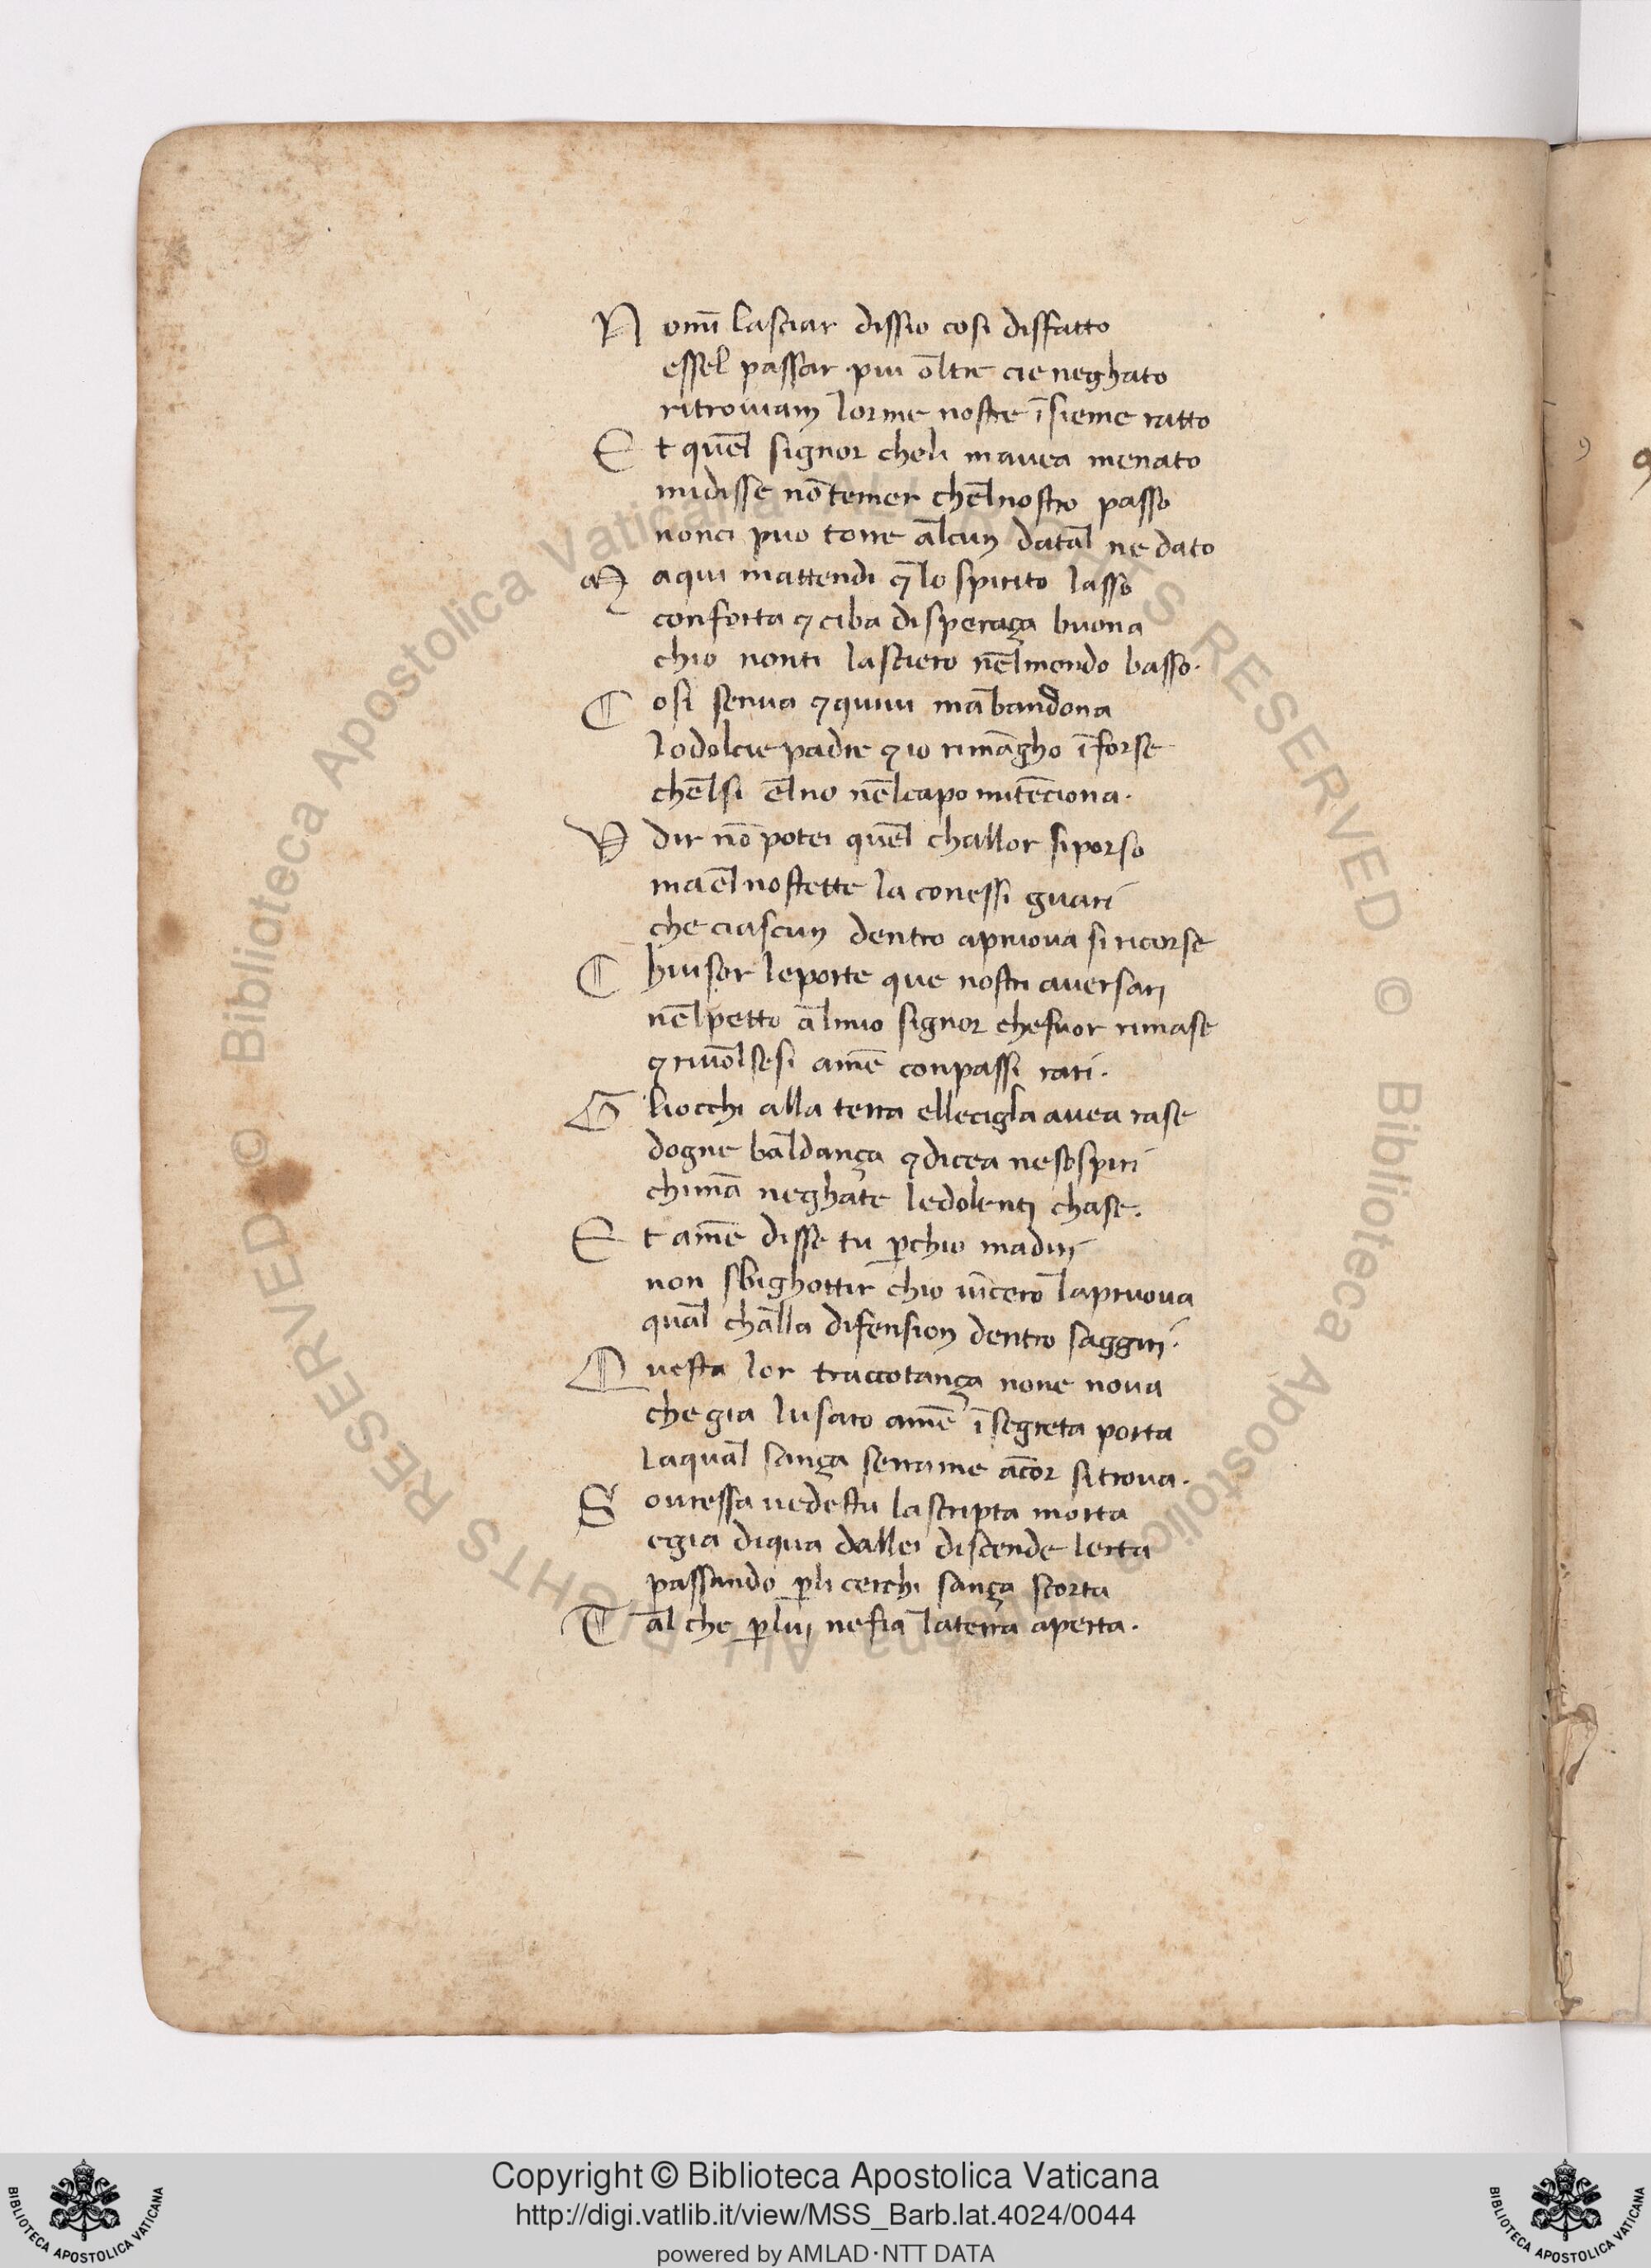 N omi lasciar dissio cosi disfatto
essel passar piu oltre cie neghato
ritroviam lorme nostre īsieme ratto
E t quel signor cheli mavea menato
midisse nō temer chel nostro passo
nonci puo torre alcun datal ne dato
M aqui mattendi ⁊ lo spirito lasso
conforta ⁊ ciba disperāça buona
chio nonti lasciero nel mondo basso.
C osi senva ⁊ quivi mabandona
lo dolcie padre ⁊ io rimāgho ī forse
chel si el no nel capo mi tēciona.
V dir nō potei quel challor si porso
ma el no stette la conessi guari
che ciascun dentro apruova si ricorse
C hiusor le porte que nostri aversari
nel petto al mio signor che fuor rimase
⁊ rivolsesi amē conpassi rari.
G liocchi alla terra elle cigla avea rase
dogne baldança ⁊ dicea ne sospiri
chi mā neghate le dolenti chase.
E t amē disse tu ꝑchio madiri
non sbighottir chio vīcero la pruova
qual challa difension dentro saggiri.
Q uesta lor traccotança none nova
che gia lusaro amē ī segreta porta
laqual sança serrame ācor si trova.
S ovressa vedestu la scripta morta
e gia diqua dallei discende lerta
passando ꝑli cerchi sança scorta
T al che ꝑlui ne fia la terra aperta.
© Biblioteca Apostolica Vaticana ALL RIGHTS RESERVED © Biblioteca Apostolica Vaticana ALL RIGHTS RESERVED
Copyright © Biblioteca Apostolica Vaticana
http://digi.vatlib.it/view/MSS_Barb.lat.4024/0044
powered by AMLAD·NTT DATA
BIBLIOTECA APOSTOLICA VATICANA
BIBLIOTECA APOSTOLICA VATICANA